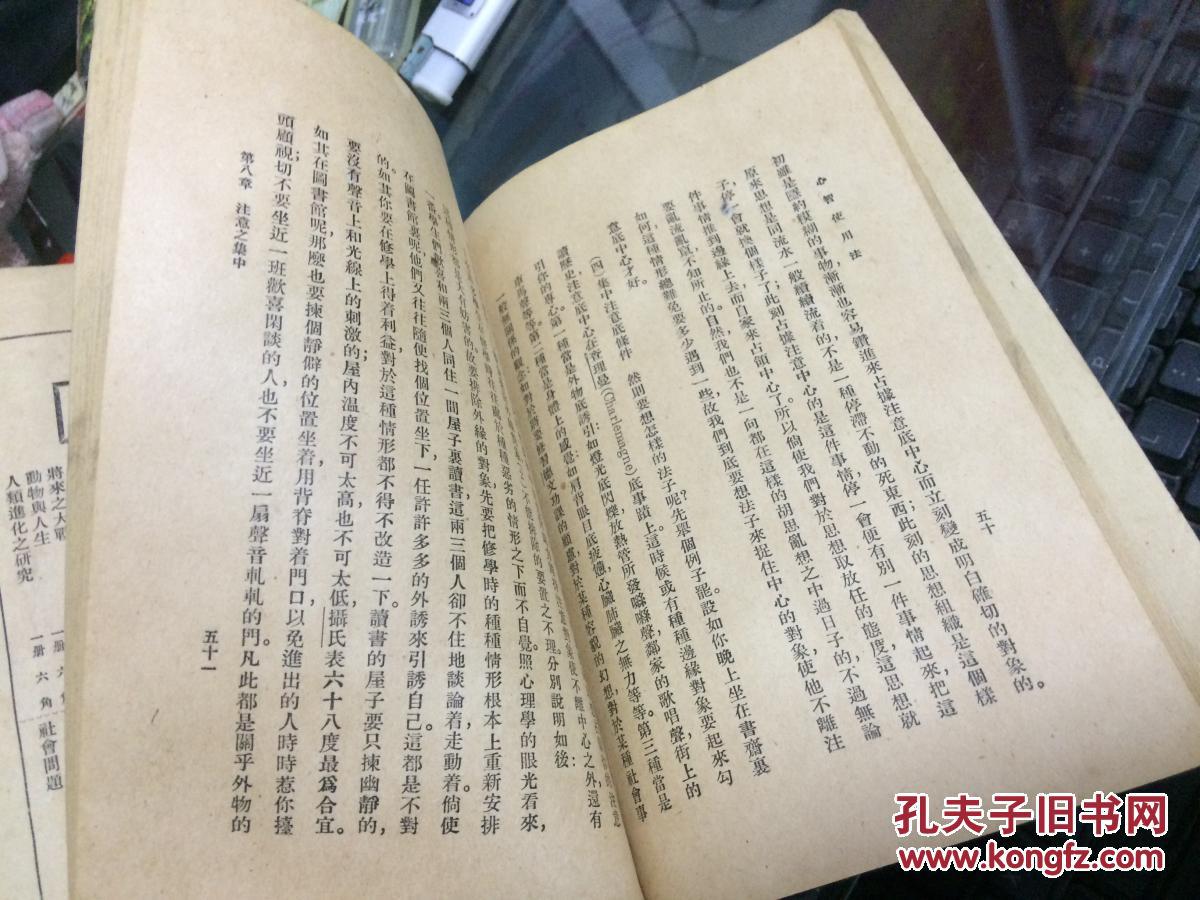 心智使用法
五十
初雖是隱約模糊的事物漸漸也容易鑽進來占據注意底中心而立刻變成明白確切的對象的。
原來思想是同流水一般續續流着的不是一種停滯不動的死東西；此刻的思想組織是這個樣
子，停一會就換個樣子了；此刻占據注意中心的是這件事情，停一會便有別一件事情起來，把這
件事情推到邊緣上去，而自家來占領中心了。所以倘使我們對於思想取放任的態度，這思想就
要亂流亂竄，不知所止的。自然我們也不是一向都在這樣的胡思亂想之中過日子的，不過無論
如何，這種情形總難免要多少遇到一些，故我們到底要想法子來捉住中心的對象，使他不離注
意底中心才好。
（四）集中注意底條件　然則要想怎樣的法子呢？先單個例子罷。設如你晚上坐在書齋裏
讀歷史，注意底中心在查理曼(Charlemagne)底事蹟上。這時候或有種種邊緣對象要起來勾
引你的專心。第一種當是外物底誘引：如燈光底閃爍，放熱管所發嘶嘶聲，鄰家的歌唱聲，街上的
車馬聲等等。第二種當是身體上的感覺：如肩背眼目底疲憊，心臟肺臟之無力等等。第三種當是
一般無關係的觀念：如對於將要修習德文功課的顧慮，對於某種容貌的幻想，對於某種社會事
使不離中心之外，還有
不理。分別說明如後：
種種惡劣的情形之下而不自覺。照心理學的眼光看來，
大有妨害的，故要排除外緣的對象，先要把修學時的種種情形根本上重新安排
一番。學生們
兩三個人同住一間屋子裏讀書，這兩三個人卻不住地談論着走動着。倘使
在圖書館裏呢，他們又往往隨便找個位置坐下，一任許許多多的外誘來引誘自己。這都是不對
的。如其你要在修學上得着利益，對於這種情形都不得不改造一下。讀書的屋子要只揀幽靜的，
要沒有聲音上和光線上的刺激的；屋內温度不可太高也不可太低，攝氏表六十八度最爲合宜。
如其在圖書館呢，那麼也要揀個靜僻的位置坐着，用背脊對着門口，以免進出的人時時惹你擡
頭顧視；切不要坐近一班歡喜閑談的人，也不要坐近一扇聲音軋軋的門。凡此都是關乎外物的
第八章　注意之集中
五十一
社會問題
將來之大戰　一册　六角
動物與人生
人類進化之研究　一册　六角
孔夫子旧书网
www.kongfz.com